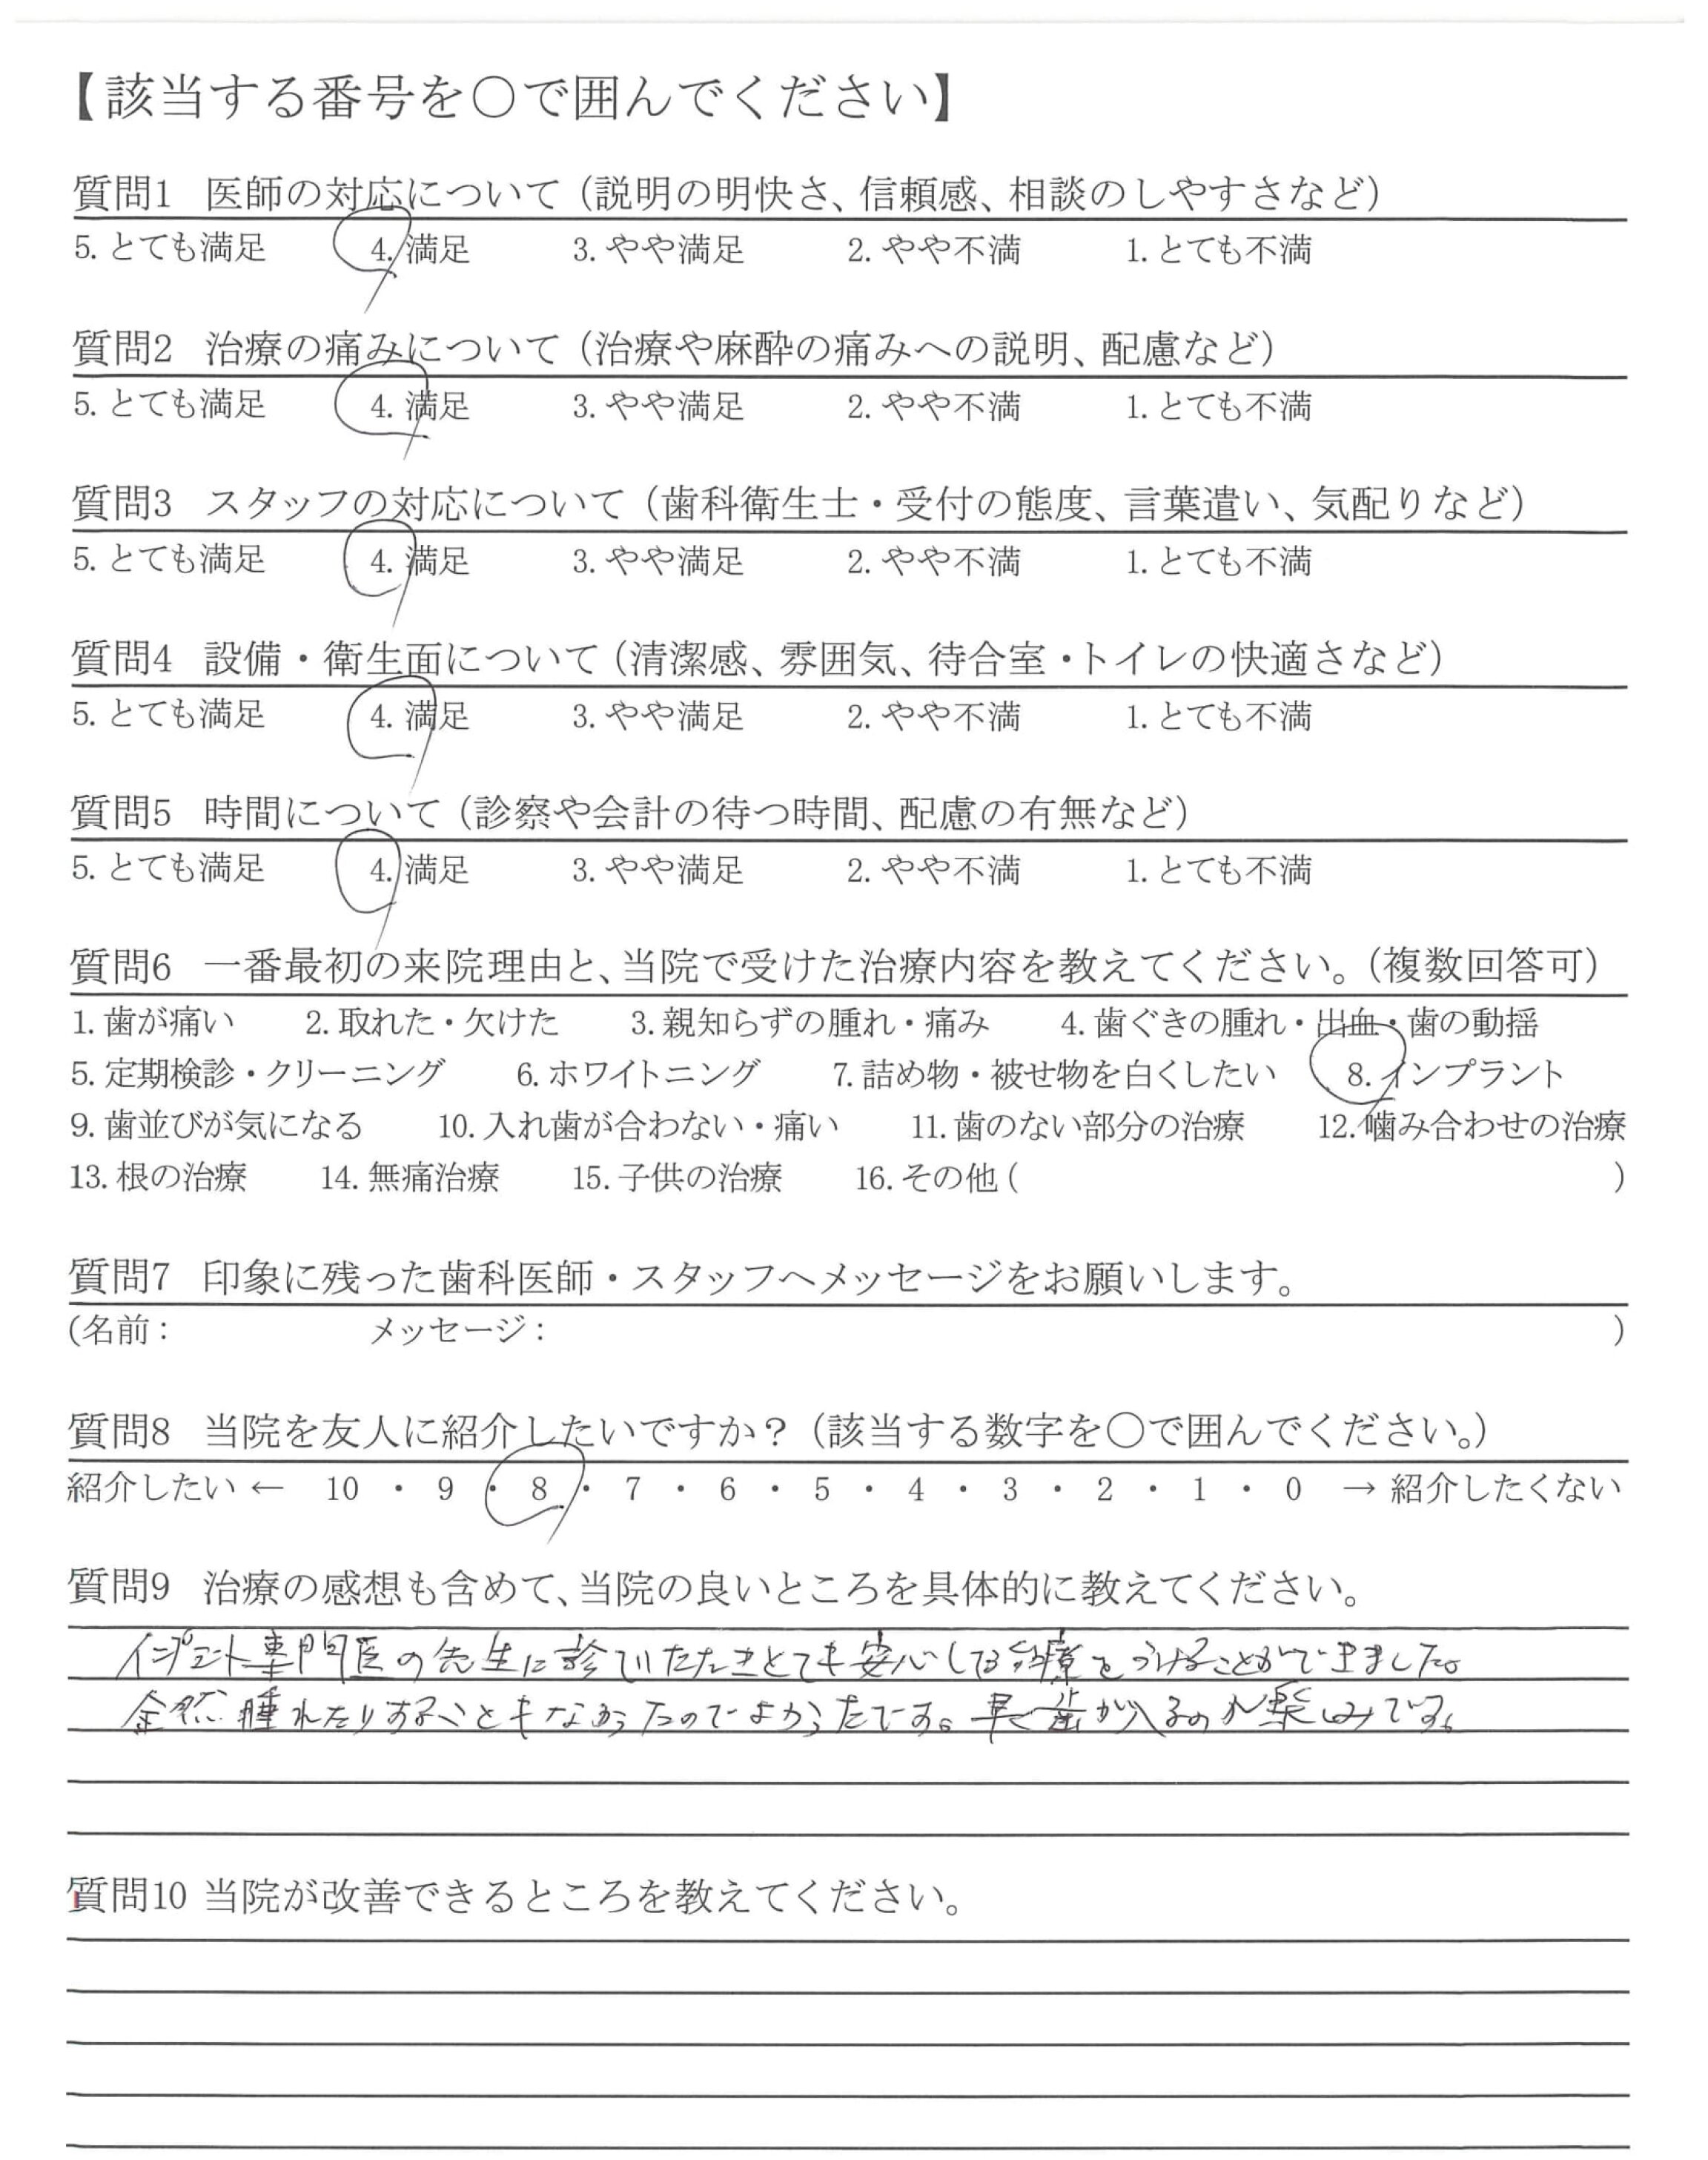 【該当する番号を○で囲んでください】
質問1 医師の対応について（説明の明快さ、信頼感、相談のしやすさなど）
5. とても満足 4. 満足 3. やや満足 2. やや不満 1. とても不満
質問2 治療の痛みについて（治療や麻酔の痛みへの説明、配慮など）
5. とても満足 4. 満足 3. やや満足 2. やや不満 1. とても不満
質問3 スタッフの対応について（歯科衛生士・受付の態度、言葉遣い、気配りなど）
5. とても満足 4. 満足 3. やや満足 2. やや不満 1. とても不満
質問4 設備・衛生面について（清潔感、雰囲気、待合室・トイレの快適さなど）
5. とても満足 4. 満足 3. やや満足 2. やや不満 1. とても不満
質問5 時間について（診察や会計の待つ時間、配慮の有無など）
5. とても満足 4. 満足 3. やや満足 2. やや不満 1. とても不満
質問6 一番最初の来院理由と、当院で受けた治療内容を教えてください。（複数回答可）
1. 歯が痛い 2. 取れた・欠けた 3. 親知らずの腫れ・痛み 4. 歯ぐきの腫れ・出血・歯の動揺
5. 定期検診・クリーニング 6. ホワイトニング 7. 詰め物・被せ物を白くしたい 8. インプラント
9. 歯並びが気になる 10. 入れ歯が合わない・痛い 11. 歯のない部分の治療 12. 噛み合わせの治療
13. 根の治療 14. 無痛治療 15. 子供の治療 16. その他 ( )
質問7 印象に残った歯科医師・スタッフへメッセージをお願いします。
(名前： メッセージ： )
質問8 当院を友人に紹介したいですか？（該当する数字を○で囲んでください。）
紹介したい ← 10 ・ 9 ・ 8 ・ 7 ・ 6 ・ 5 ・ 4 ・ 3 ・ 2 ・ 1 ・ 0 → 紹介したくない
質問9 治療の感想も含めて、当院の良いところを具体的に教えてください。
インプラント専門医の先生に診ていただきとても安心して治療をうけることができました。
全然腫れたりすることもなかったのでよかったです。早く歯が入るのが楽しみです。
質問10 当院が改善できるところを教えてください。